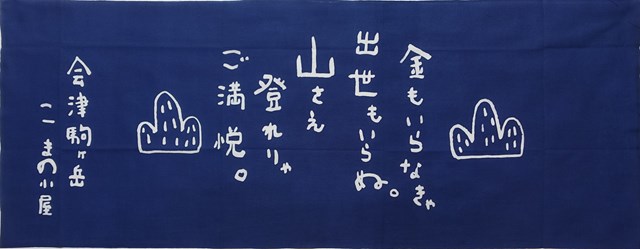 金もいらなきゃ
出世もいらぬ。
山さえ
登れりゃ
ご満悦。
会津駒ヶ岳
こまの小屋